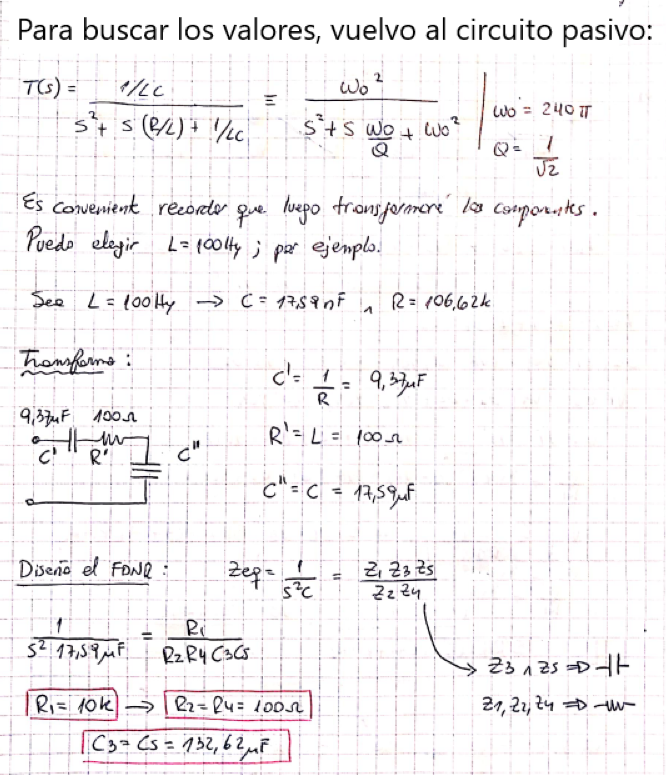 Para buscar los valores, vuelvo al circuito pasivo:
T(s) = (1/LC) / (s² + s (R/L) + 1/LC) ≡ ω₀² / (s² + s ω₀/Q + ω₀²) | ω₀ = 240 π
Q = 1/√2
Es conveniente recordar que luego transformaré los componentes.
Puedo elegir L = 100 Hy ; por ejemplo.
Sea L = 100 Hy → C = 17,59 nF ∧ R = 106,62k
Transformo :
C' = 1/R = 9,37μF
9,37μF 100Ω
C' R' C"
R' = L = 100Ω
C" = C = 17,59μF
Diseño el FDNR : Zeq = 1/(s²C) = (Z1 Z3 Z5)/(Z2 Z4)
1/(s² 17,59μF) = R1/(R2 R4 C3 C5)
Z3 ∧ Z5 ⇒
R1 = 10k → R2 = R4 = 100Ω
Z1, Z2, Z4 ⇒
C3 = C5 = 132,62μF